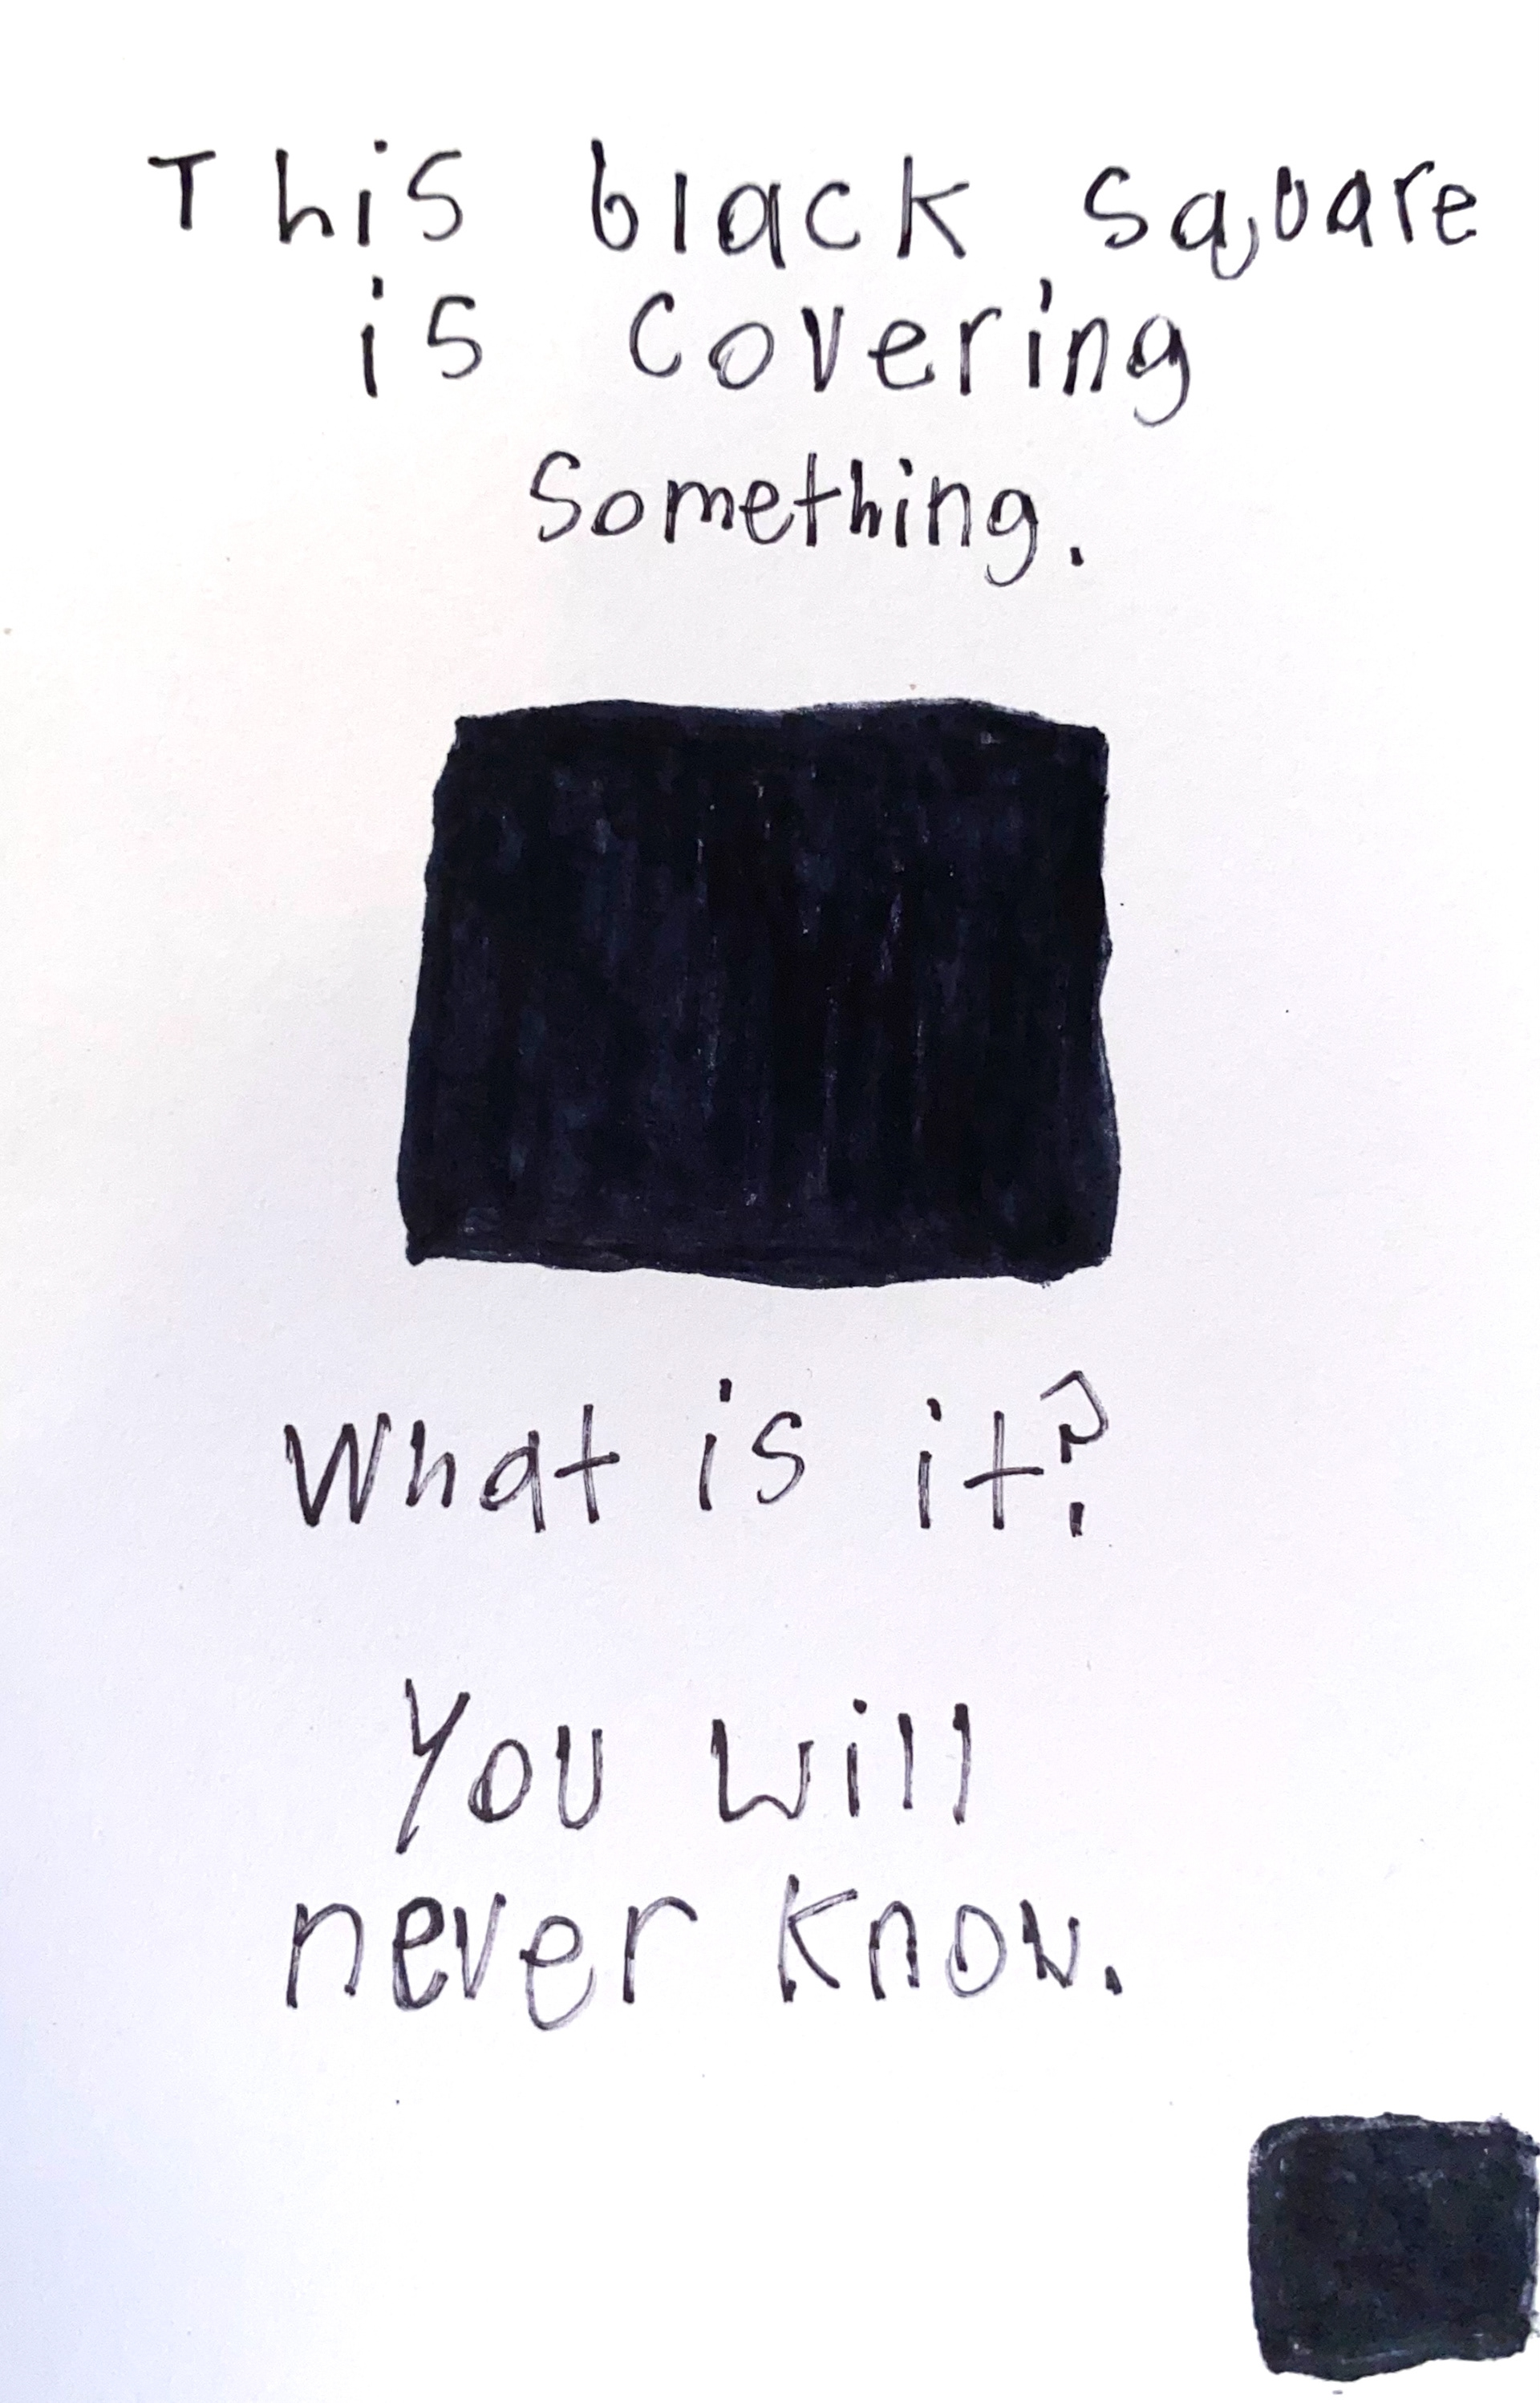 This black square
is covering
something.
What is it?
You will
never know.